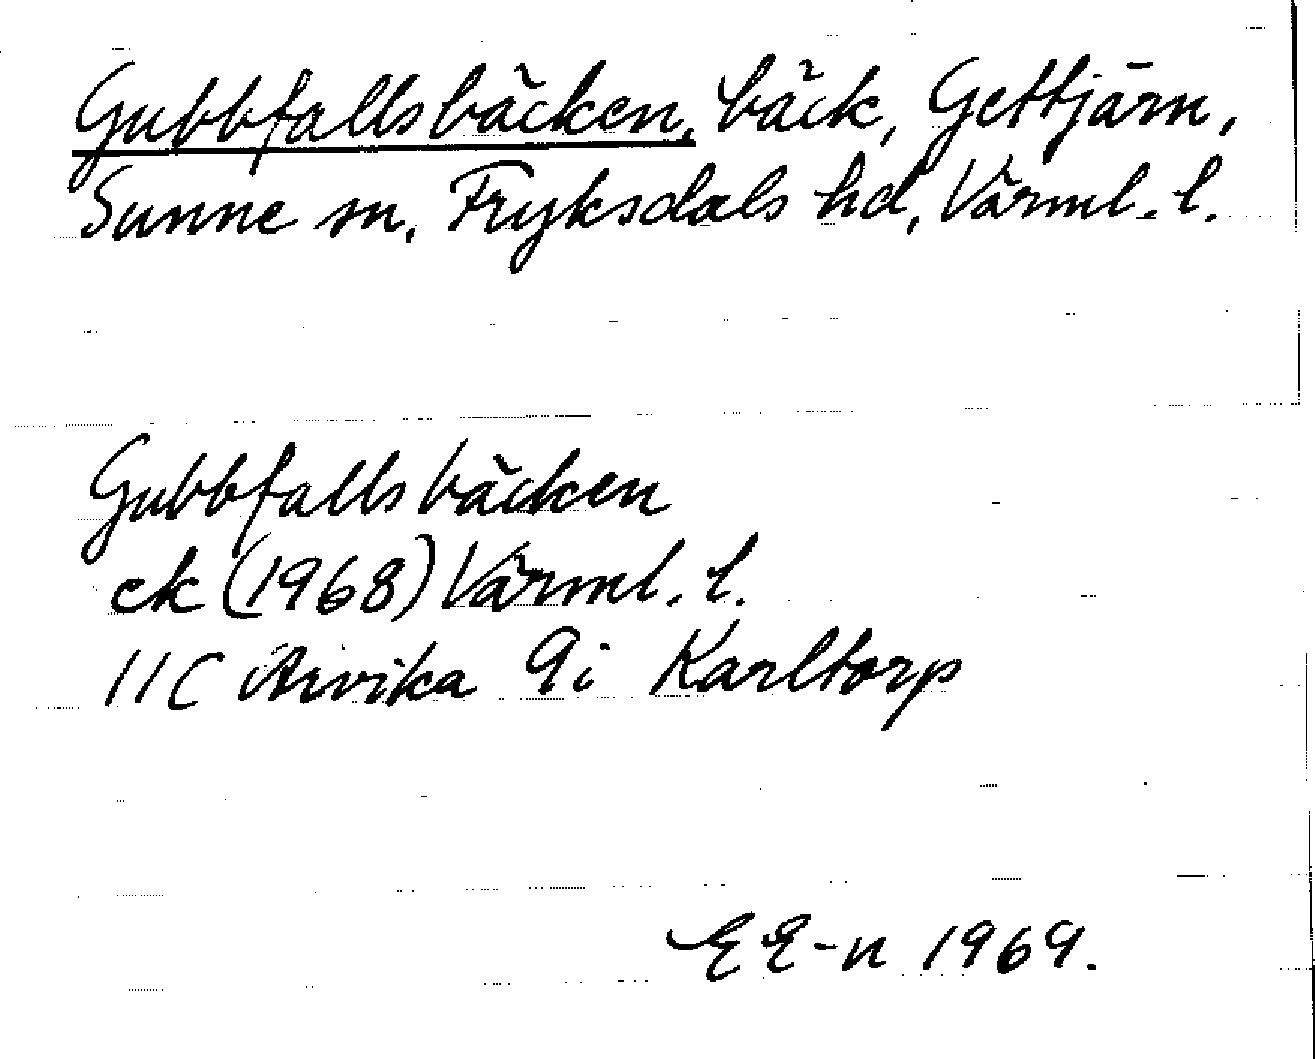 Gubbfallsbäcken, bäck, Gettjärn,
Sunne sn, Fryksdals hd, Värml. l.
Gubbfallsbäcken
ek (1968) Värml. l.
11C Arvika 9i Karltorp
E E-n 1969.